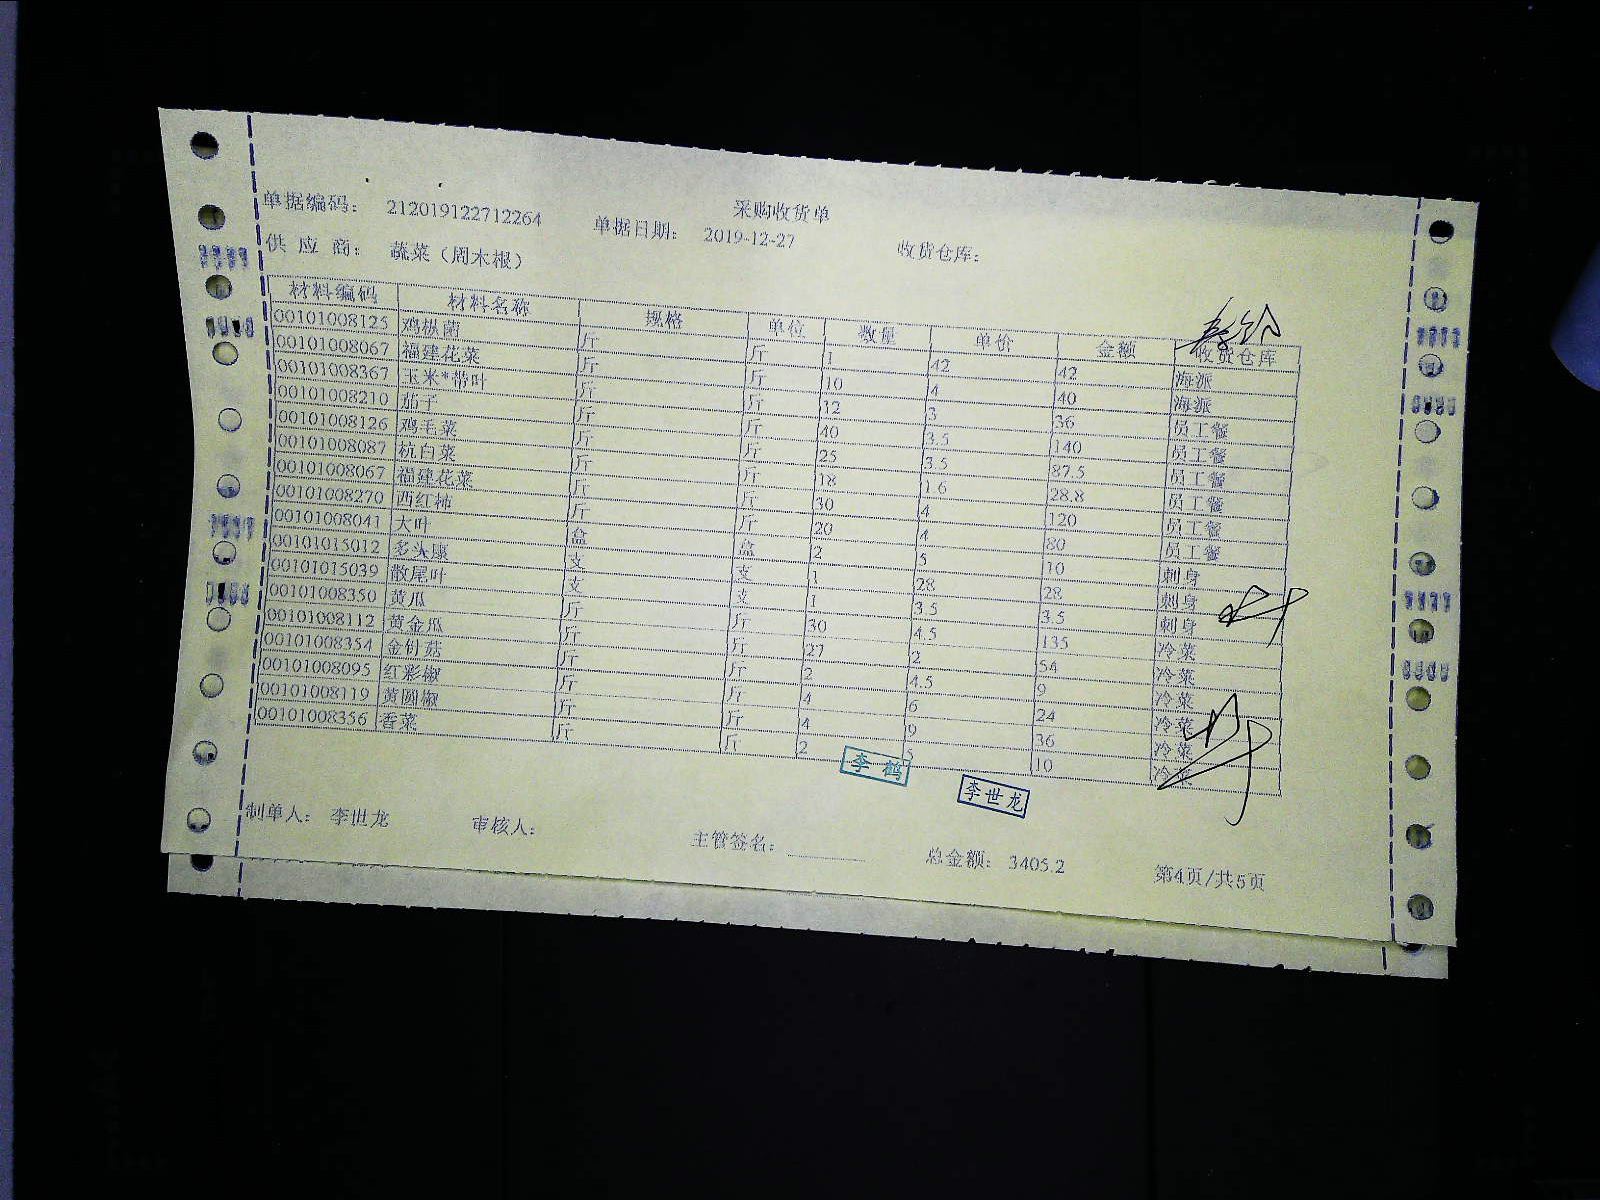 采购收货单
单据编码： 212019122712264 单据日期： 2019-12-27 收货仓库：
供 应 商： 蔬菜（周木根）
材料编码 材料名称 规格 单位 数量 单价 金额 收货仓库
00101008125 鸡枞菌 斤 斤 1 42 42 海派
00101008067 福建花菜 斤 斤 10 4 40 海派
00101008367 玉米*带叶 斤 斤 12 3 36 员工餐
00101008210 茄子 斤 斤 40 3.5 140 员工餐
00101008126 鸡毛菜 斤 斤 25 3.5 87.5 员工餐
00101008087 杭白菜 斤 斤 18 1.6 28.8 员工餐
00101008067 福建花菜 斤 斤 30 4 120 员工餐
00101008270 西红柿 斤 斤 20 4 80 员工餐
00101008041 大叶 盒 盒 2 5 10 刺身
00101015012 多头康 支 支 1 28 28 刺身
00101015039 散尾叶 支 支 1 3.5 3.5 刺身
00101008350 黄瓜 斤 斤 30 4.5 135 冷菜
00101008112 黄金瓜 斤 斤 27 2 54 冷菜
00101008354 金针菇 斤 斤 2 4.5 9 冷菜
00101008095 红彩椒 斤 斤 4 6 24 冷菜
00101008119 黄圆椒 斤 斤 4 9 36 冷菜
00101008356 香菜 斤 斤 2 5 10 冷菜
李 鹤
李世龙
制单人： 李世龙 审核人： 主管签名： 总金额： 3405.2 第4页/共5页